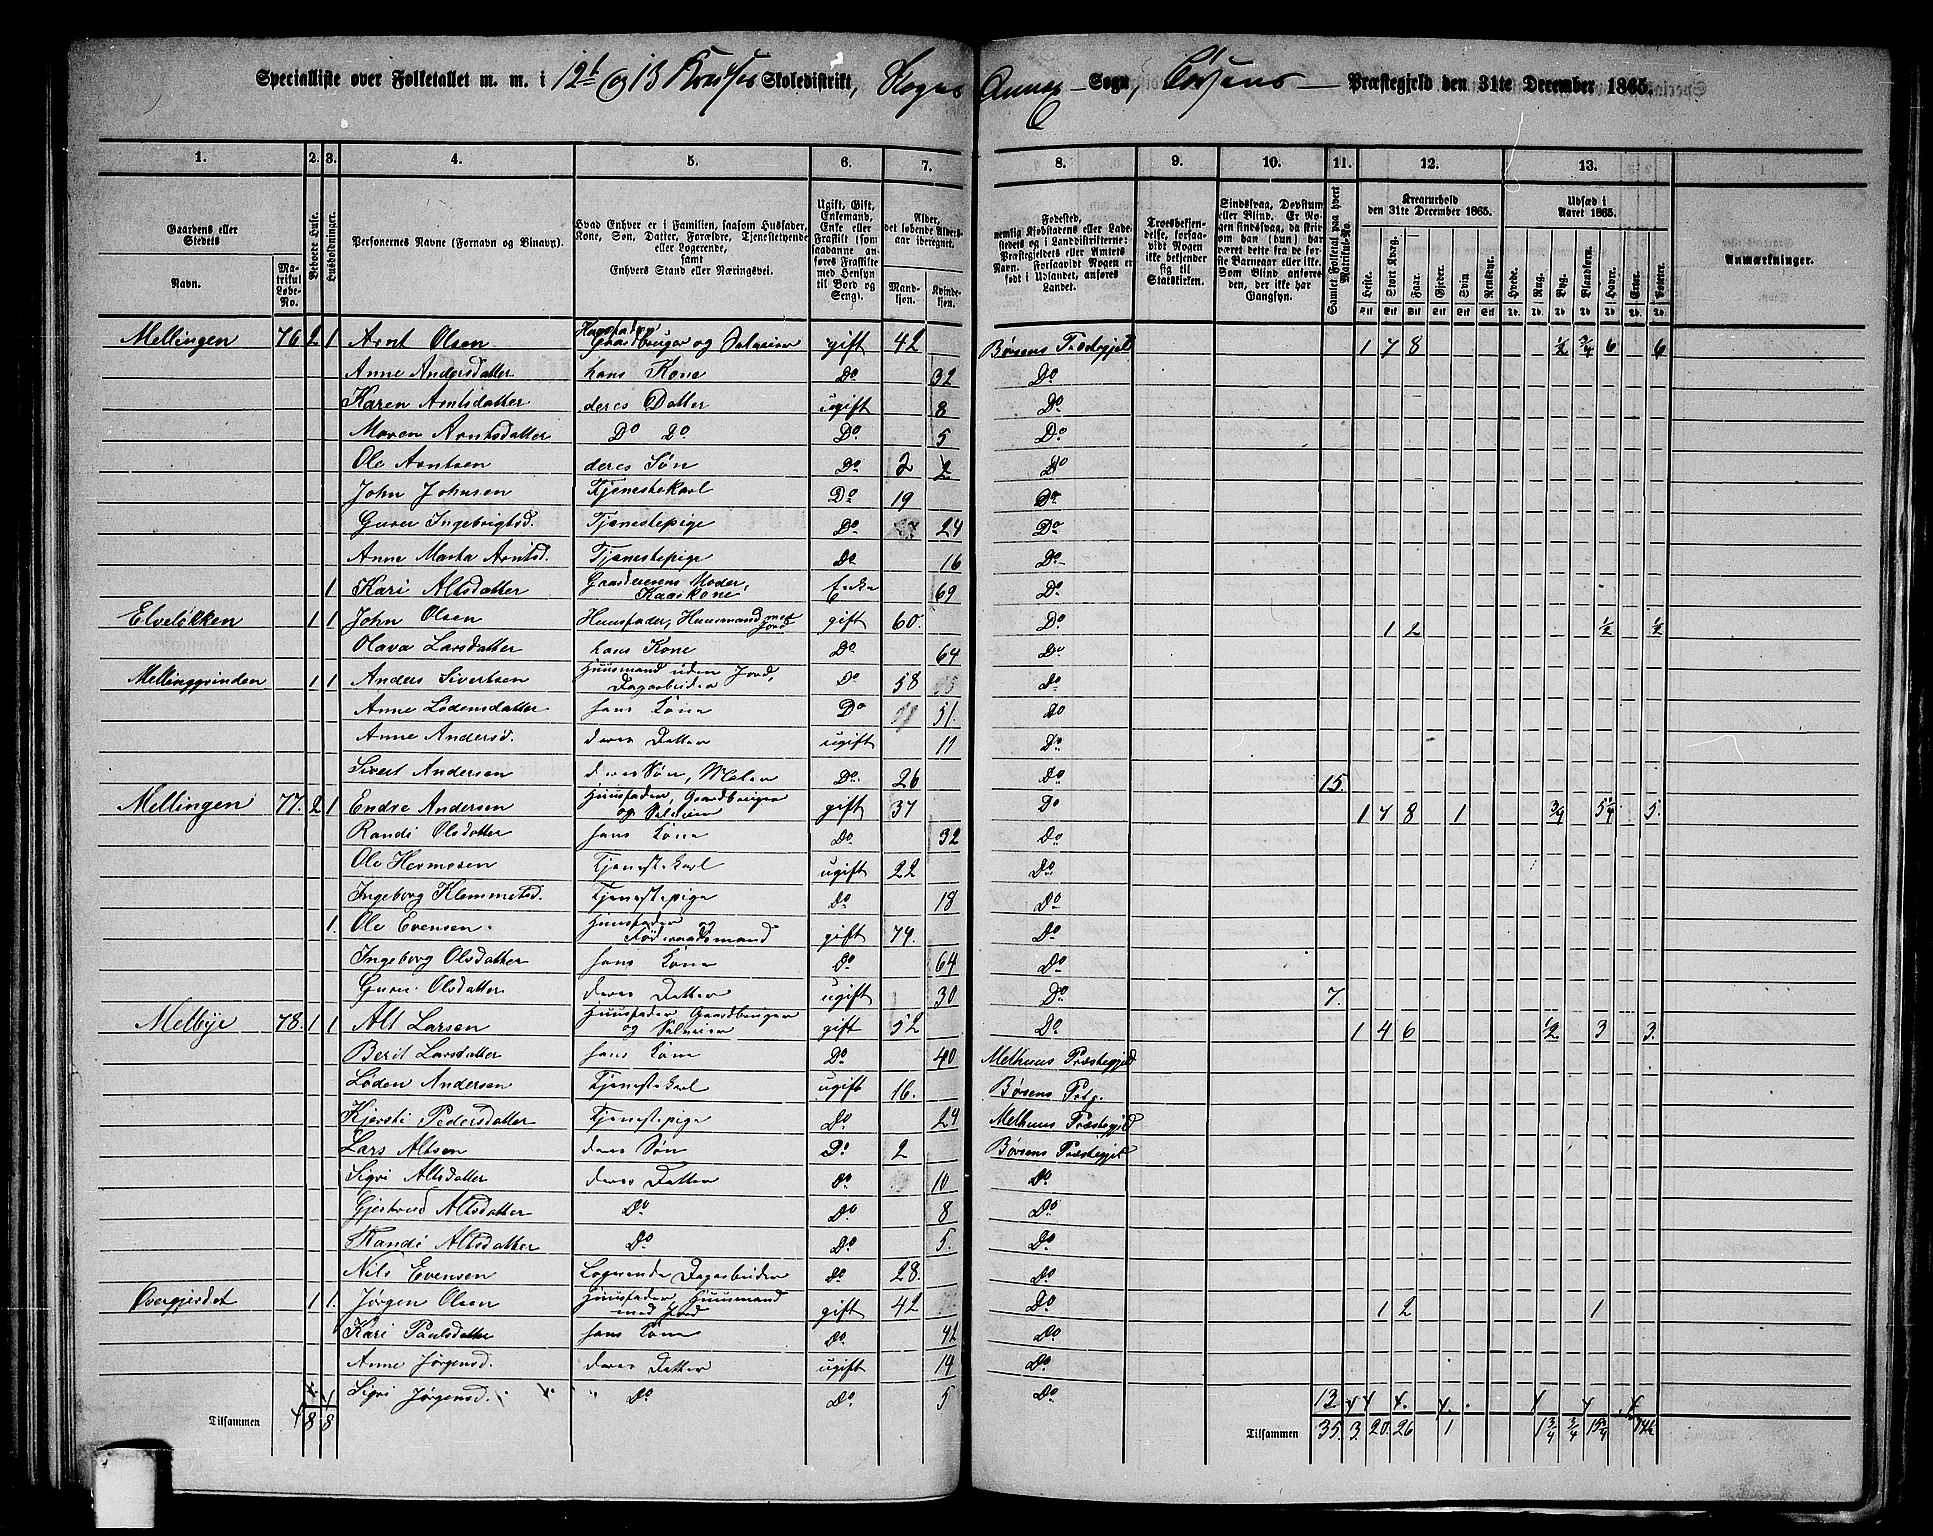 Specialliste over Folketallet m. m. i 12te og 13 Skoledistrikt, Annex Sogn, Børsens Præstegjeld den 31te December 1865.
1. 2. 3. 4. 5. 6. 7. 8. 9. 10. 11. 12. 13.
Gaardens eller Stedets Navn. Matrikul Løbe-No. Beboede Huse. Husholdninger. Personernes Navne (Fornavn og Binavn). Hvad Enhver er i Familien, saasom Husfader, Kone, Søn, Datter, Forældre, Tjenestetyende eller Logerende, samt Enhvers Stand eller Næringsvei. Ugift, Gift, Enkemand, Enke eller Fraskilt (som saadanne anføres Fraskilte med Hensyn til Bord og Seng). Alder, det løbende Aldersaar iberegnet. Mandkjøn. Kvindekjøn. Fødested, Troesbekjendelse, forsaavidt Nogen ikke bekjender sig til Statskirken. Samlet Folketal paa hvert Matrikul-No. Kreaturhold den 31te December 1865. Udsæd i Aaret 1865. Anmærkninger.
Heste. Stort Kvæg. Faar. Gjeder. Svin. Rensdyr. Hvede. Rug. Byg. Blandkorn. Havre. Erter. Poteter.
Mellingen 76 2 1 Arnt Olsen Huusfader, Gaardbruger og Selveier gift 42 Børsens Præstegjeld 1 7 8 1/2 3/4 6 6
Anne Andersdatter hans Kone Do 32 Do
Karen Arntsdatter deres Datter ugift 8 Do
Maren Arntsdatter Do Do Do 5 Do
Ole Arntsen deres Søn Do 2 2 Do
John Johnsen Tjenestekarl Do 19 Do
Guru Ingebrigtsd. Tjenestepige Do 24 Do
Anne Marta Arntsd. Tjenestepige Do 16 Do
1 Kari Altsdatter Gaardeierens Moder, Kaarkone Enke 69 Do
Elveløkken 1 1 John Olsen Huusfader, Huusmand med Jord gift 60. Do 1 2 1/2 1/2
Olava Larsdatter hans Kone Do 64 Do
Mellinggrinden 1 1 Anders Sivertsen Huusmand uden Jord, Dagarbeider Do 58 Do
Anne Lodensdatter hans Kone Do 51. Do
Anne Andersd. deres Datter ugift 11 Do
Sivert Andersen deres Søn, Maler Do. 26 Do 15.
Mellingen 77. 2 1 Endre Andersen Huusfader, Gaardbruger og Selveier gift 37 Do 1 7 8 1 3/4 5 1/4 5.
Randi Olsdatter hans Kone Do. 32 Do
Ole Hermosen Tjenestekarl ugift 22 Do
Ingeborg Klemmetsd. Tjenestepige Do 18 Do
1. Ole Evensen. Huusfader og Føderaadsmand gift 74. Do
Ingeborg Olsdatter hans Kone Do 64 Do
Guru Olsdatter deres Datter ugift 30 Do 7.
Melbye 78. 1 1 Alt Larsen Huusfader Gaardbruger og Selveier gift 52 Do 1 4 6 1/2 3 3.
Berit Larsdatter hans Kone Do 40 Melhuus Præstegjeld
Loden Andersen Tjenestekarl ugift 16. Børsens Prtg.
Kjersti Pedersdatter Tjenestepige Do 24 Melhuus Præstegjeld
Lars Altsen deres Søn Do 2 Børsens Præstegjeld
Sigri Altsdatter deres Datter Do 10 Do
Gjertrud Altsdatter Do Do 8 Do
Randi Altsdatter Do Do 5. Do
Nils Evensen Logerende Dagarbeider Do 28. Do
Overgjerdet 1 1. Jørgen Olsen Huusfader Huusmand med Jord gift 42 Do 1 2 1
Kari Paulsdatter hans Kone Do 42 Do
Anne Jørgensd. deres Datter ugift 14 Do
Sigri Jørgensd. Do Do. 5 Do 13
Tilsammen 8 8 Tilsammen 35. 3. 20. 26 1 1 3/4 3/4 15 3/4